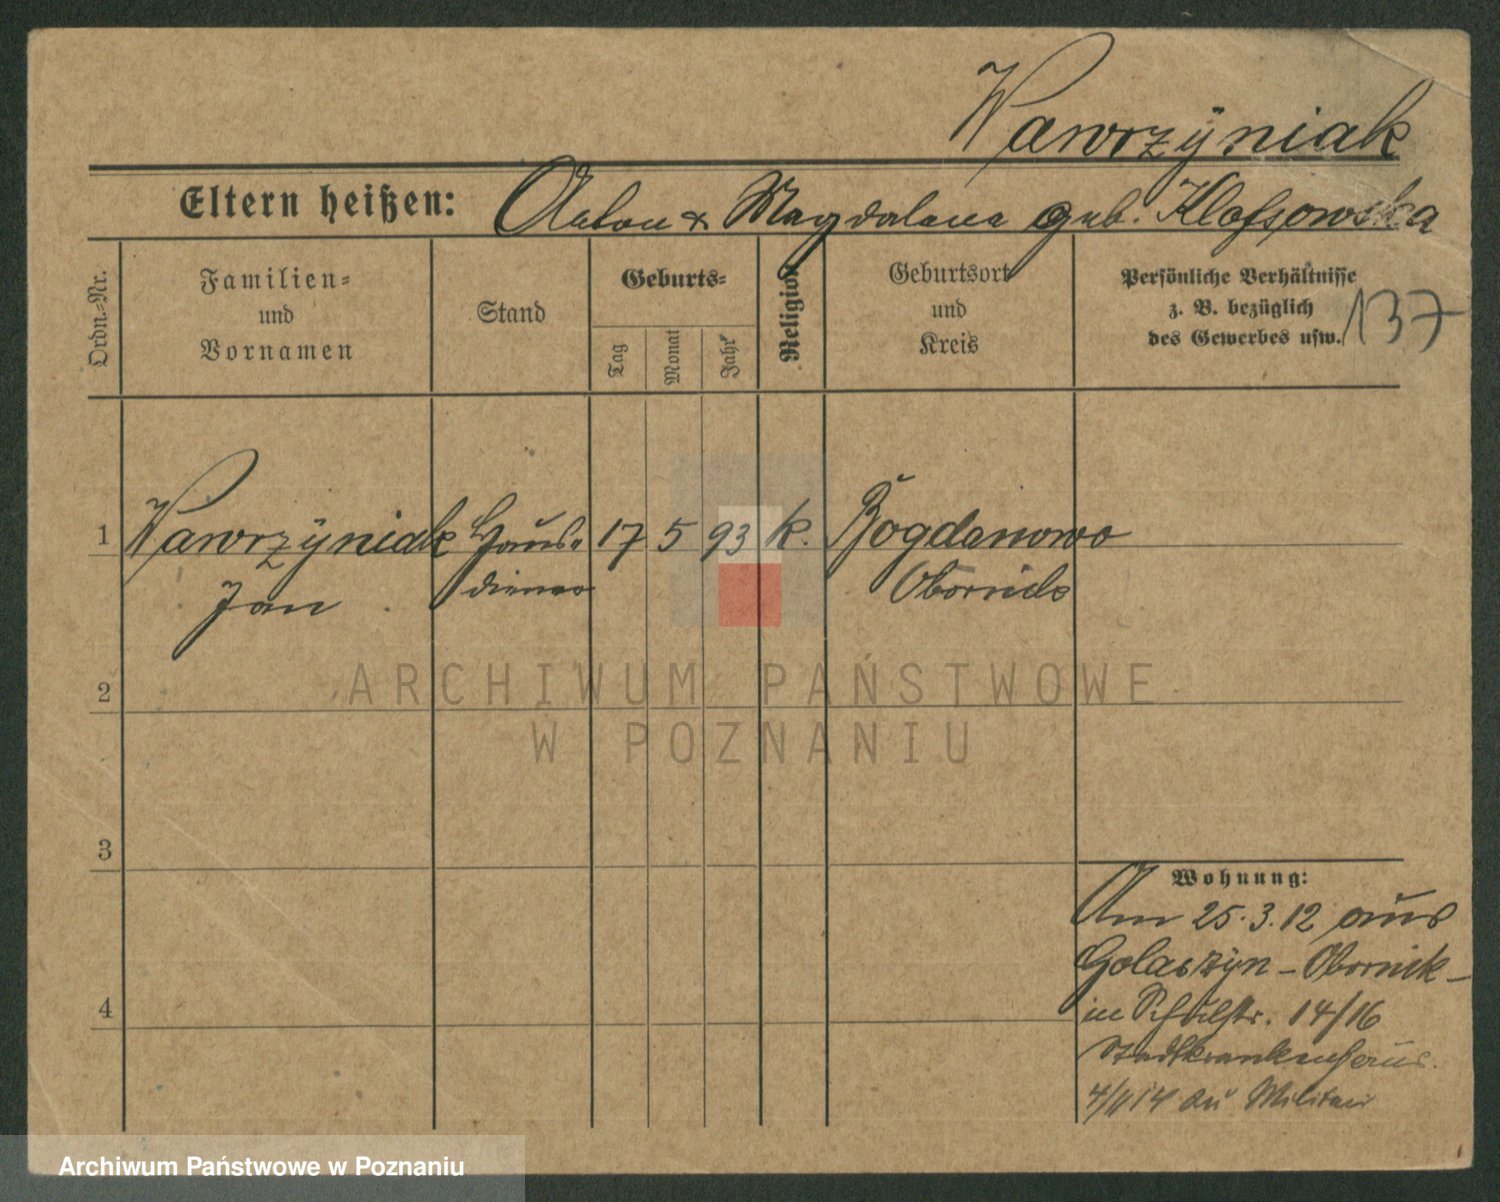 Wawrzÿniak
Eltern heißen: Anton & Magdalena geb. Klofsowska
Ordn.-Nr.
Familien-
und
Vornamen
Stand
Geburts-
Tag
Monat
Jahr
Religion
Geburtsort
und
Kreis
Persönliche Verhältnisse
z. B. bezüglich
des Gewerbes usw.
137
1 Wawrzÿniak Haus- 17 5 93 k. Bogdanowo
Jan diener Obornik
2
ARCHIWUM PAŃSTWOWE
W POZNANIU
3
Wohnung:
Am 25.3.12 aus
Golaszÿn - Obornik -
in Schulstr. 14/16
Stadtkrankenhaus.
14 zu Militair
4
Archiwum Państwowe w Poznaniu